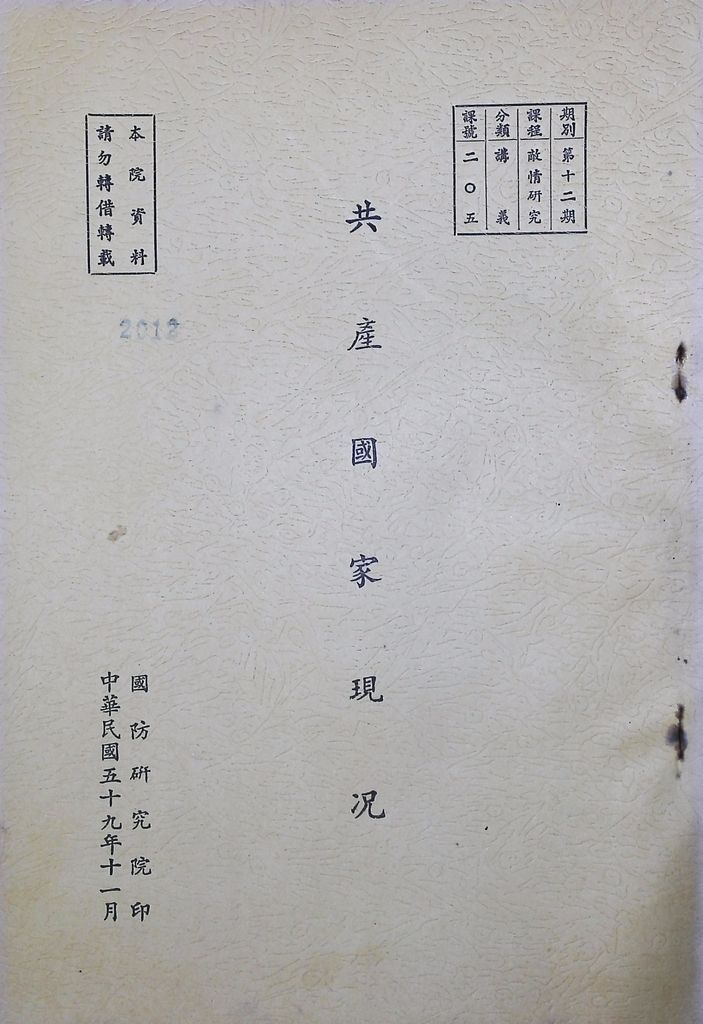 期別 第十二期
課程 敵情研究
分類 講義
課號 二〇五
共產國家現況
本院資料
請勿轉借轉載
2012
國防研究院印
中華民國五十九年十一月